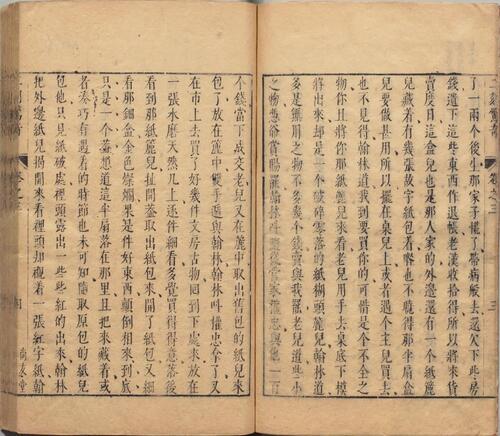 了一兩个後生那家子擺了
錢遺下這些東西作退帳老漢收拾得所以將來貨
賣度日這盒兒也是那人家的外邊還有一个紙簏
兒藏着有幾張故字紙包着咱也不曉得那半扇盒
兒要做甚用所以擺在桌兒上或者遇个主兒買去
也不見得翰林道我到要買你的可惜是个不全之
物你且將你那紙簏兒來看老兒用手去桌底下摸
將出來却是一个破碎零落的紙糊頭簏兒翰林道
多是無用之物不多幾个錢賣與我罷老兒道些小
之物
个錢當下成交老兒又在簏中取出舊包的紙兒來
包了放在簏中雙手遞與翰林翰林叫權忠拿了又
在市上去買了好幾件文房古物回到下處來放在
一張水磨天然几上逐件細看多覺買得得意落後
看到那紙簏兒扯開蓋取出紙包來開了紙包又細
看那鈿盒金色燦爛果是件好東西顛倒相來到底
只是一个蓋想道這半扇落在那里且把來藏着或
者湊巧有遇着的時節也未可知隨取原包的紙兒
包他只見紙破處裡頭露出一些些紅的出來翰林
把外邊紙兒揭開來看裡頭却襯着一張紅字紙翰
尚友堂